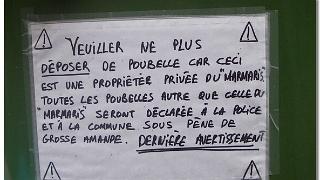 VEUILLER NE PLUS
DÉPOSER DE POUBELLE CAR CECI
EST UNE PROPRIÉTÉR PRIVÉE DU "MARMARIS"
TOUTES LES POUBELLES AUTRE QUE CELLE DU
"MARMARIS" SERONT DÉCLARÉE À LA POLICE
ET À LA COMMUNE SOUS PÈNE DE
GROSSE AMANDE. DERNIÈRE AVERTISSEMENT